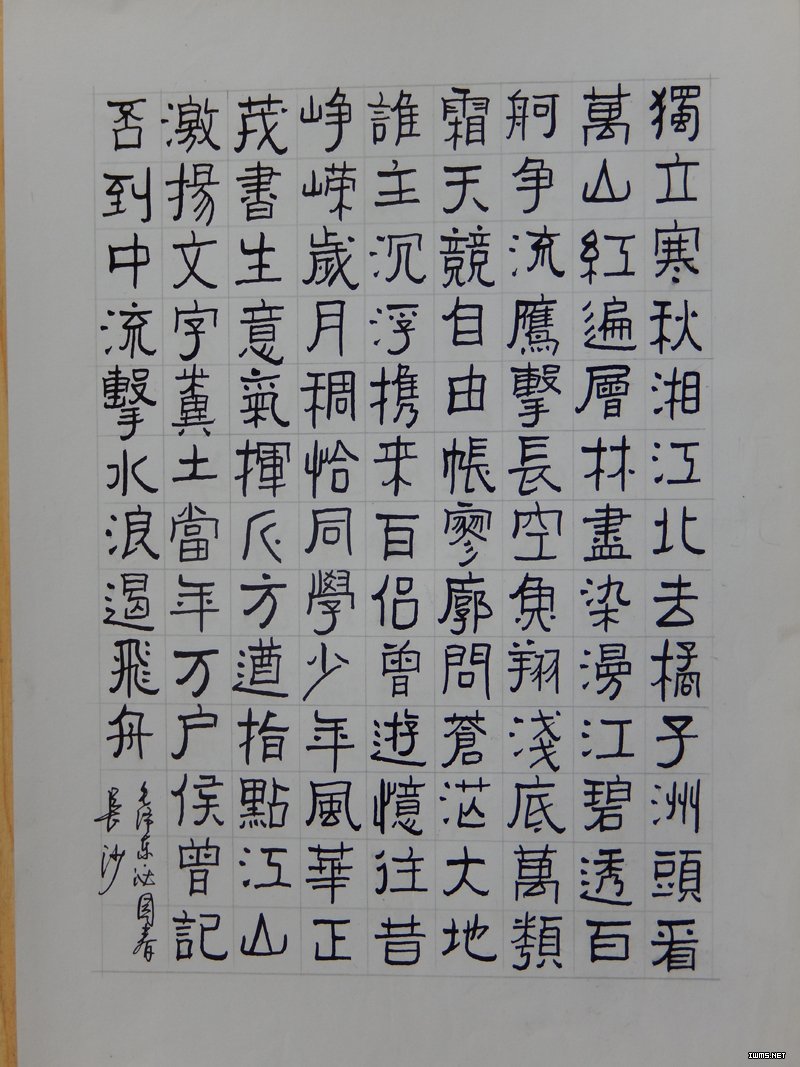 獨立寒秋湘江北去橘子洲頭看
萬山紅遍層林盡染漫江碧透百
舸争流鷹擊長空魚翔淺底萬類
霜天競自由帳廖廓問蒼茫大地
誰主沉浮携来百侣曾遊憶往昔
峥嵘歲月稠恰同學少年風華正
茂書生意氣揮斥方遒指點江山
激揚文字糞土當年万户侯曾記
否到中流擊水浪遏飛舟
毛泽东沁园春
長沙
IWMS.NET